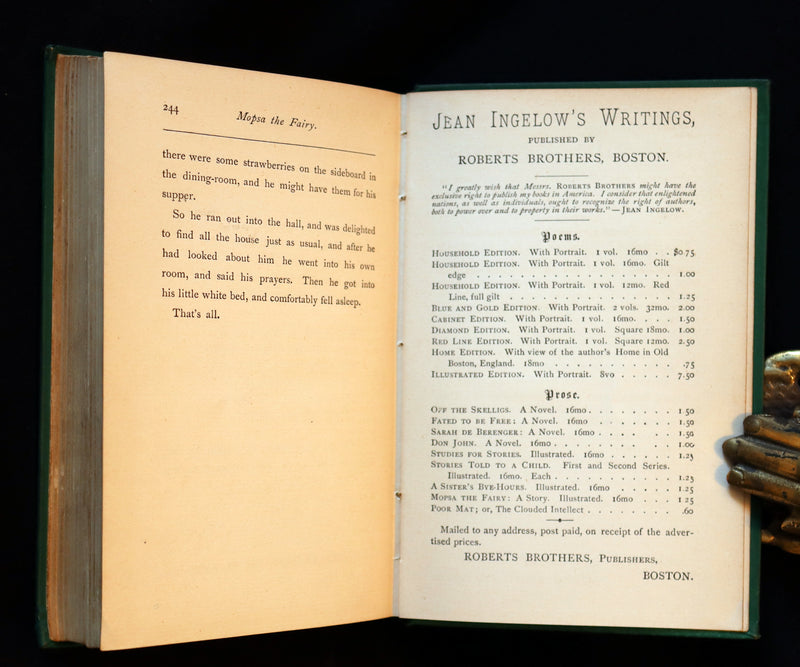 244
Mopsa the Fairy.
there were some strawberries on the sideboard in
the dining-room, and he might have them for his
supper.
So he ran out into the hall, and was delighted
to find all the house just as usual, and after he
had looked about him he went into his own
room, and said his prayers. Then he got into
his little white bed, and comfortably fell asleep.
That's all.
JEAN INGELOW'S WRITINGS,
PUBLISHED BY
ROBERTS BROTHERS, BOSTON.
"I greatly wish that Messrs. ROBERTS BROTHERS might have the
exclusive right to publish my books in America. I consider that enlightened
nations, as well as individuals, ought to recognize the right of authors,
both to power over and to property in their works." — JEAN INGELOW.
Poems.
HOUSEHOLD EDITION. With Portrait. 1 vol. 16mo . . $0 75
HOUSEHOLD EDITION. With Portrait. 1 vol. 16mo. Gilt
edge . . . . . . . . . . . . . . . . . . 1.00
HOUSEHOLD EDITION. With Portrait. 1 vol. 12mo. Red
Line, full gilt . . . . . . . . . . . . . . . 1.25
BLUE AND GOLD EDITION. With Portrait 2 vols. 32mo. 2.00
CABINET EDITION. With Portrait. 1 vol. 16mo. . . . 1.50
DIAMOND EDITION. With Portrait. 1 vol. Square 18mo. 1.00
RED LINE EDITION. With Portrait. 1 vol. Square 12mo. 2.50
HOME EDITION. With view of the author's Home in Old
Boston, England. 18mo . . . . . . . . . . .75
ILLUSTRATED EDITION. With Portrait. 8vo . . . . . 7.50
Prose.
OFF THE SKELLIGS. A Novel. 16mo . . . . . . . . 1.50
FATED TO BE FREE: A Novel. 16mo . . . . . . . 1.50
SARAH DE BERENGER: A Novel. 16mo . . . . . . 1.50
DON JOHN. A Novel. 16mo . . . . . . . . . . 1.00
STUDIES FOR STORIES. Illustrated. 16mo . . . . . . 1.25
STORIES TOLD TO A CHILD. First and Second Series.
Illustrated. 16mo. Each . . . . . . . . . . . 1.25
A SISTER'S BYE-HOURS. Illustrated. 16mo . . . . . 1 25
MOPSA THE FAIRY: A Story. Illustrated. 16mo . . . 1 25
POOR MAT; or, The Clouded Intellect . . . . . . . . .60
Mailed to any address, post paid, on receipt of the adver-
tised prices.
ROBERTS BROTHERS, PUBLISHERS,
BOSTON.